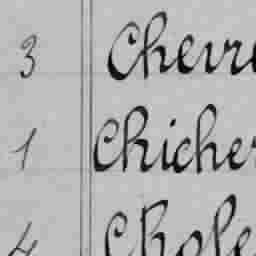 3 Chevre
1 Chicher
4 Chole